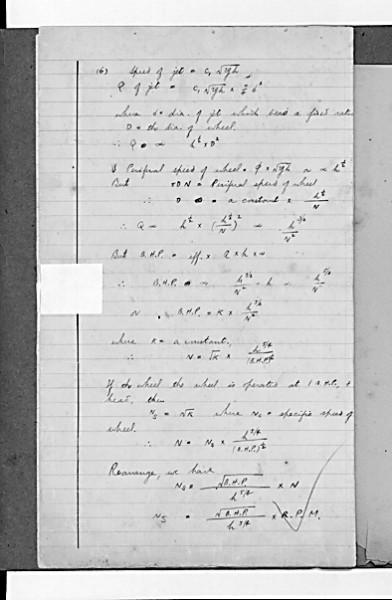 (6) Speed of jet = c, √2gh
Q of jet = c, √2gh × π/4 d²
where d = dia. of jet which bears a fixed ratio
D = the dia. of wheel.
∴ Q ∝ h^½ × D²
Peripheral speed of wheel = φ × √2gh ∝ h^½
But πDN = Peripheral speed of wheel
∴ D = a constant × h^½/N
∴ Q ∝ h^½ × (h^½/N)² ∝ h^3/2/N²
But B.H.P. = eff. × Q × h ×
∴ B.H.P. ∝ h^3/2/N² × h ∝ h^5/2/N²
∴ B.H.P. = K × h^5/2/N²
where K = a constant.
∴ N = √K × h^5/4/(B.H.P.)^½
If the wheel is operated at 1 B.H.P., +
head, then
Ns = √K where Ns = specific speed of
wheel.
∴ N = Ns × h^5/4/(B.H.P.)^½
Rearrange, we have
Ns = √B.H.P./h^5/4 × N
Ns = √B.H.P./h^5/4 × R.P.M.